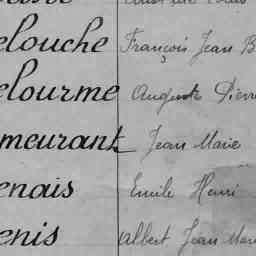 elouche François Jean B
elourme Auguste Pierre
meurant Jean Marie
enais Emile Henri
enis Albert Jean Marie